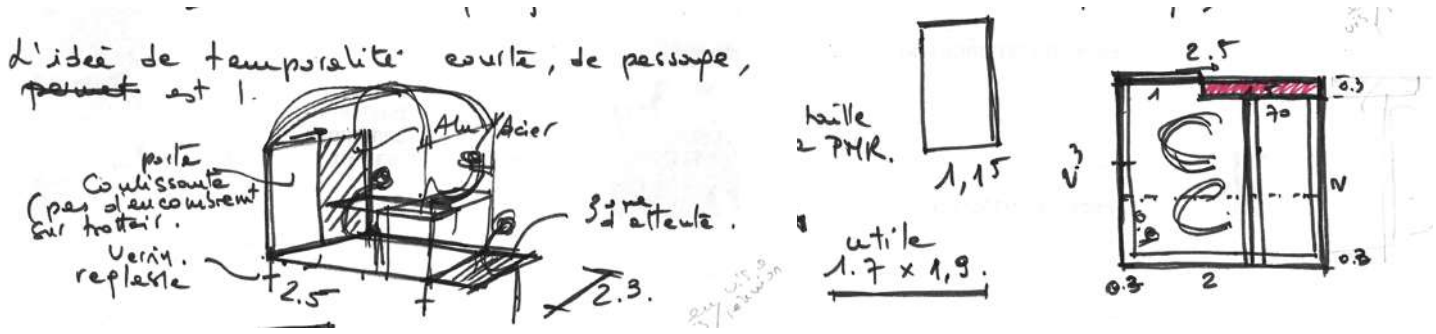 L'idée de temporalité courte, de passage,
permet est 1.
Alu/Acier
porte
Coulissante
(pas d'encombrement
sur trottoir.
Verin.
réglable
2.5
zone
d'attente.
2.3.
taille
PMR.
1,15
utile
1.7 x 1,9.
2.5
1
70
0.3
2
0.3
0.3
2